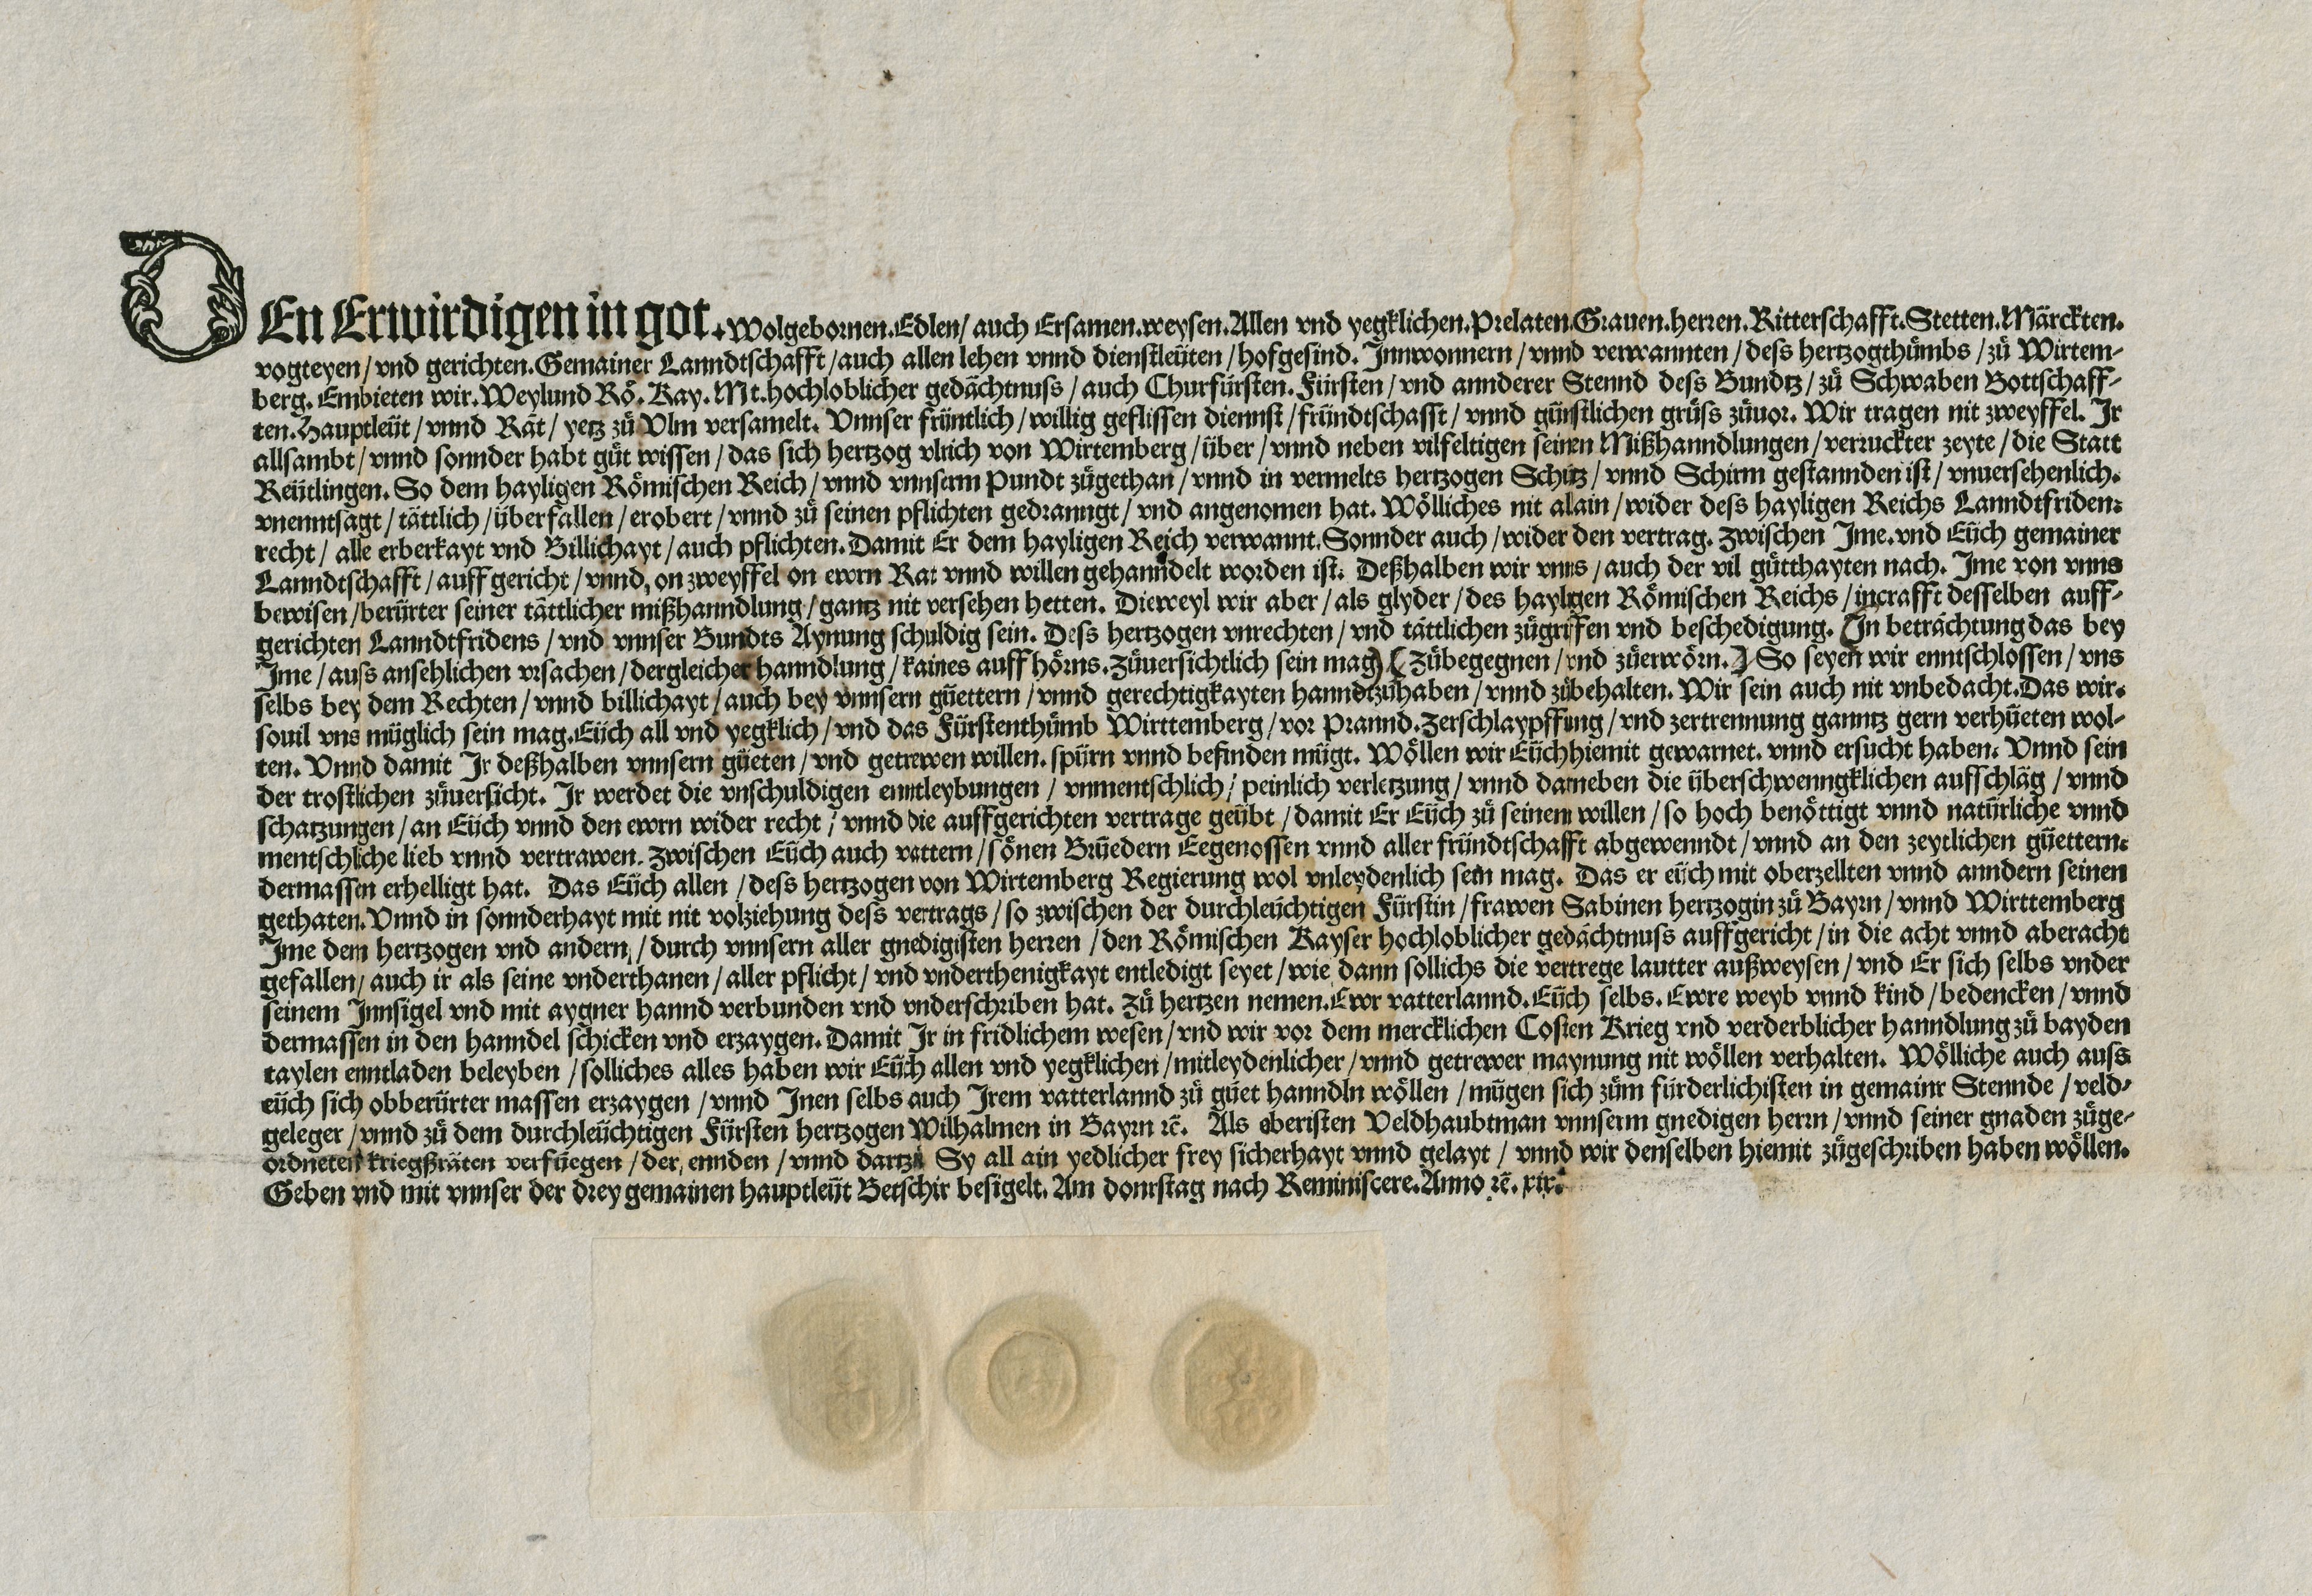 DEn Erwirdigen in got. Wolgebornen. Edlen/ auch Ersamen. weysen. Allen vnd yegklichen. Prelaten. Grauen. herren. Ritterschafft. Stetten. Märckten.
vogteyen/ vnd gerichten. Gemainer Lanndtschafft/ auch allen lehen vnnd dienstleüten/ hofgesind. Innwonnern/ vnnd verwannten/ dess hertzogthůmbs/ zů Wirtem-
berg. Embieten wir. Weylund Rö. Kay. Mt. hochloblicher gedächtnuss/ auch Churfürsten. Fürsten/ vnd annderer Stennd dess Bundtz/ zů Schwaben Bottschaff-
ten. Hauptleüt/ vnnd Rät/ yetz zů Vlm versamelt. Vnnser früntlich/ willig geflissen diennst/ fründtschafft/ vnnd günstlichen grůss zůuor. Wir tragen nit zweyffel. Ir
allsambt/ vnnd sonnder habt gůt wissen/ das sich hertzog vlrich von Wirtemberg/ über/ vnnd neben vilfeltigen seinen Mißhanndlungen/ verruckter zeyte/ die Statt
Reütlingen. So dem hayligen Römischen Reich/ vnnd vnnserm Pundt zůgethan/ vnnd in vermelts hertzogen Schůtz/ vnnd Schirm gestannden ist/ vnuersehenlich.
vnenntsagt/ tättlich/ überfallen/ erobert/ vnnd zů seinen pflichten gedranngt/ vnd angenomen hat. Wölliches nit alain/ wider dess hayligen Reichs Lanndtfriden:
recht/ alle erberkayt vnd Billichayt/ auch pflichten. Damit Er dem hayligen Reich verwannt. Sonnder auch/ wider den vertrag. zwischen Ime. vnd Eüch gemainer
Lanndtschafft/ auff gericht/ vnnd, on zweyffel on ewrn Rat vnnd willen gehanndelt worden ist. Deßhalben wir vnns/ auch der vil gůtthayten nach. Ime von vnns
bewisen/ berürter seiner tättlicher mißhanndlung/ gantz nit versehen hetten. Dieweyl wir aber/ als glyder/ des hayligen Römischen Reichs/ incrafft desselben auff-
gerichten Lanndtfridens/ vnd vnnser Bundts Aynung schuldig sein. Dess hertzogen vnrechten/ vnd tättlichen zůgriffen vnd beschedigung. (In beträchtung das bey
Ime/ auss ansehlichen vrsachen/ dergleicher hanndlung/ kaines auff hörns. Zůuersichtlich sein mag) (Zůbegegnen/ vnd zůerwörn.) So seyen wir enntschlossen/ vns
selbs bey dem Rechten/ vnnd billichayt/ auch bey vnnsern güettern/ vnnd gerechtigkayten hanndtzůhaben/ vnnd zůbehalten. Wir sein auch nit vnbedacht. Das wir.
souil vns müglich sein mag. Eüch all vnd yegklich/ vnd das Fürstenthůmb Wirttemberg/ vor Prannd. Zerschlaypffung/ vnd zertrennung ganntz gern verhüeten wol-
ten. Vnnd damit Ir deßhalben vnnsern güeten/ vnd getrewen willen. spürn vnnd befinden mügt. Wöllen wir Eüch hiemit gewarnet. vnnd ersucht haben. Vnnd sein
der trostlichen zůuersicht. Ir werdet die vnschuldigen enntleybungen/ vnmentschlich/ peinlich verletzung/ vnnd darneben die überschwenngklichen aufschläg/ vnnd
schatzungen/ an Eüch vnnd den ewrn wider recht/ vnnd die auffgerichten vertrage geübt/ damit Er Eüch zů seinem willen/ so hoch benöttigt vnnd natürliche vnnd
mentschliche lieb vnnd vertrawen. zwischen Eüch auch vattern/ sönen Brüedern Eegenossen vnnd aller fründtschafft abgewenndt/ vnnd an den zeytlichen güettern:
dermassen erhelligt hat. Das Eüch allen/ dess hertzogen von Wirtemberg Regierung wol vnleydenlich sein mag. Das er eüch mit oberzellten vnnd anndern seinen
gethaten. Vnnd in sonnderhayt mit nit volziehung dess vertrags/ so zwischen der durchleüchtigen Fürstin/ frawen Sabinen hertzogin zů Bayrn/ vnnd Wirttemberg
Ime dem hertzogen vnd andern,/ durch vnnsern aller gnedigisten herren/ den Römischen Kayser hochloblicher gedächtnuss auffgericht/ in die acht vnnd aberacht
gefallen/ auch ir als seine vnderthanen/ aller pflicht/ vnd vnderthenigkayt entledigt seyet/ wie dann sollichs die vertrege lautter außweysen/ vnd Er sich selbs vnder
seinem Innsigel vnd mit aygner hannd verbunden vnd vnderschriben hat. Zů hertzen nemen. Ewr vatterlannd. Eüch selbs. Ewre weyb vnnd kind/ bedencken/ vnnd
dermassen in den hanndel schicken vnd erzaygen. Damit Ir in fridlichem wesen/ vnd wir vor dem mercklichen Costen Krieg vnd verderblicher hanndlung zů bayden
taylen enntladen beleyben/ solliches alles haben wir Eüch allen vnd yegklichen/ mitleydenlicher/ vnnd getrewer maynung nit wöllen verhalten. Wölliche auch auss
eüch sich obberürter massen erzaygen/ vnnd Inen selbs auch Irem vatterlannd zů güet hanndln wöllen/ mügen sich zům fürderlichisten in gemainr Stennde/ veld-
geleger/ vnnd zů dem durchleüchtigen Fürsten hertzogen Wilhalmen in Bayrn ꝛc̄. Als oberisten Veldhaubtman vnnserm gnedigen herrn/ vnnd seiner gnaden zůge-
ordneten kriegßräten verfüegen/ der, ennden/ vnnd dartzů Sy all ain yedlicher frey sicherhayt vnnd gelayt/ vnnd wir denselben hiemit zůgeschriben haben wöllen.
Geben vnd mit vnnser der drey gemainen hauptleüt Betschir besigelt. Am donrstag nach Reminiscere. Anno ꝛc̄. xix.